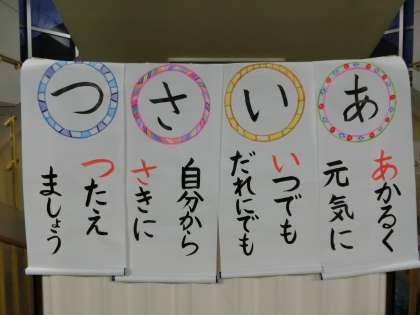 あ
あかるく
元気に
い
いつでも
だれにでも
さ
自分から
さきに
つ
つたえ
ましょう